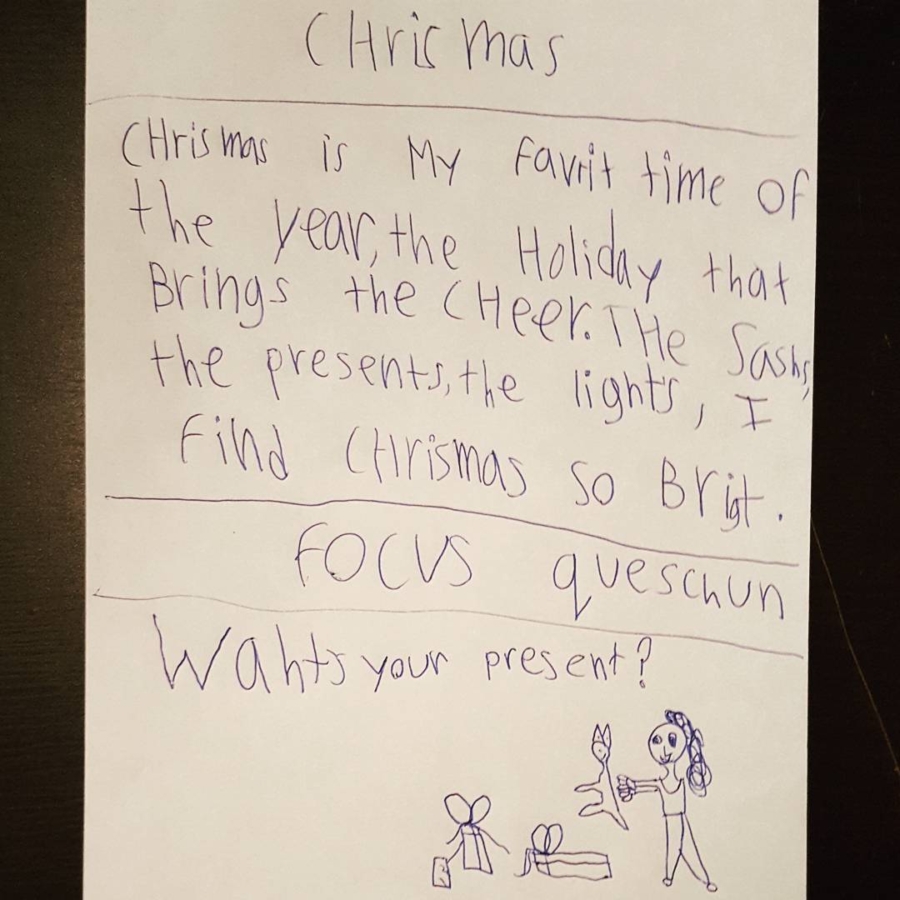 CHrismas
CHrismas is My Favrit time OF
the year, the Holiday that
Brings the CHeer. THe Sashs,
the presents, the lights, I
Find CHrismas so Brigt.
FOCUS queschun
Wahts your present?